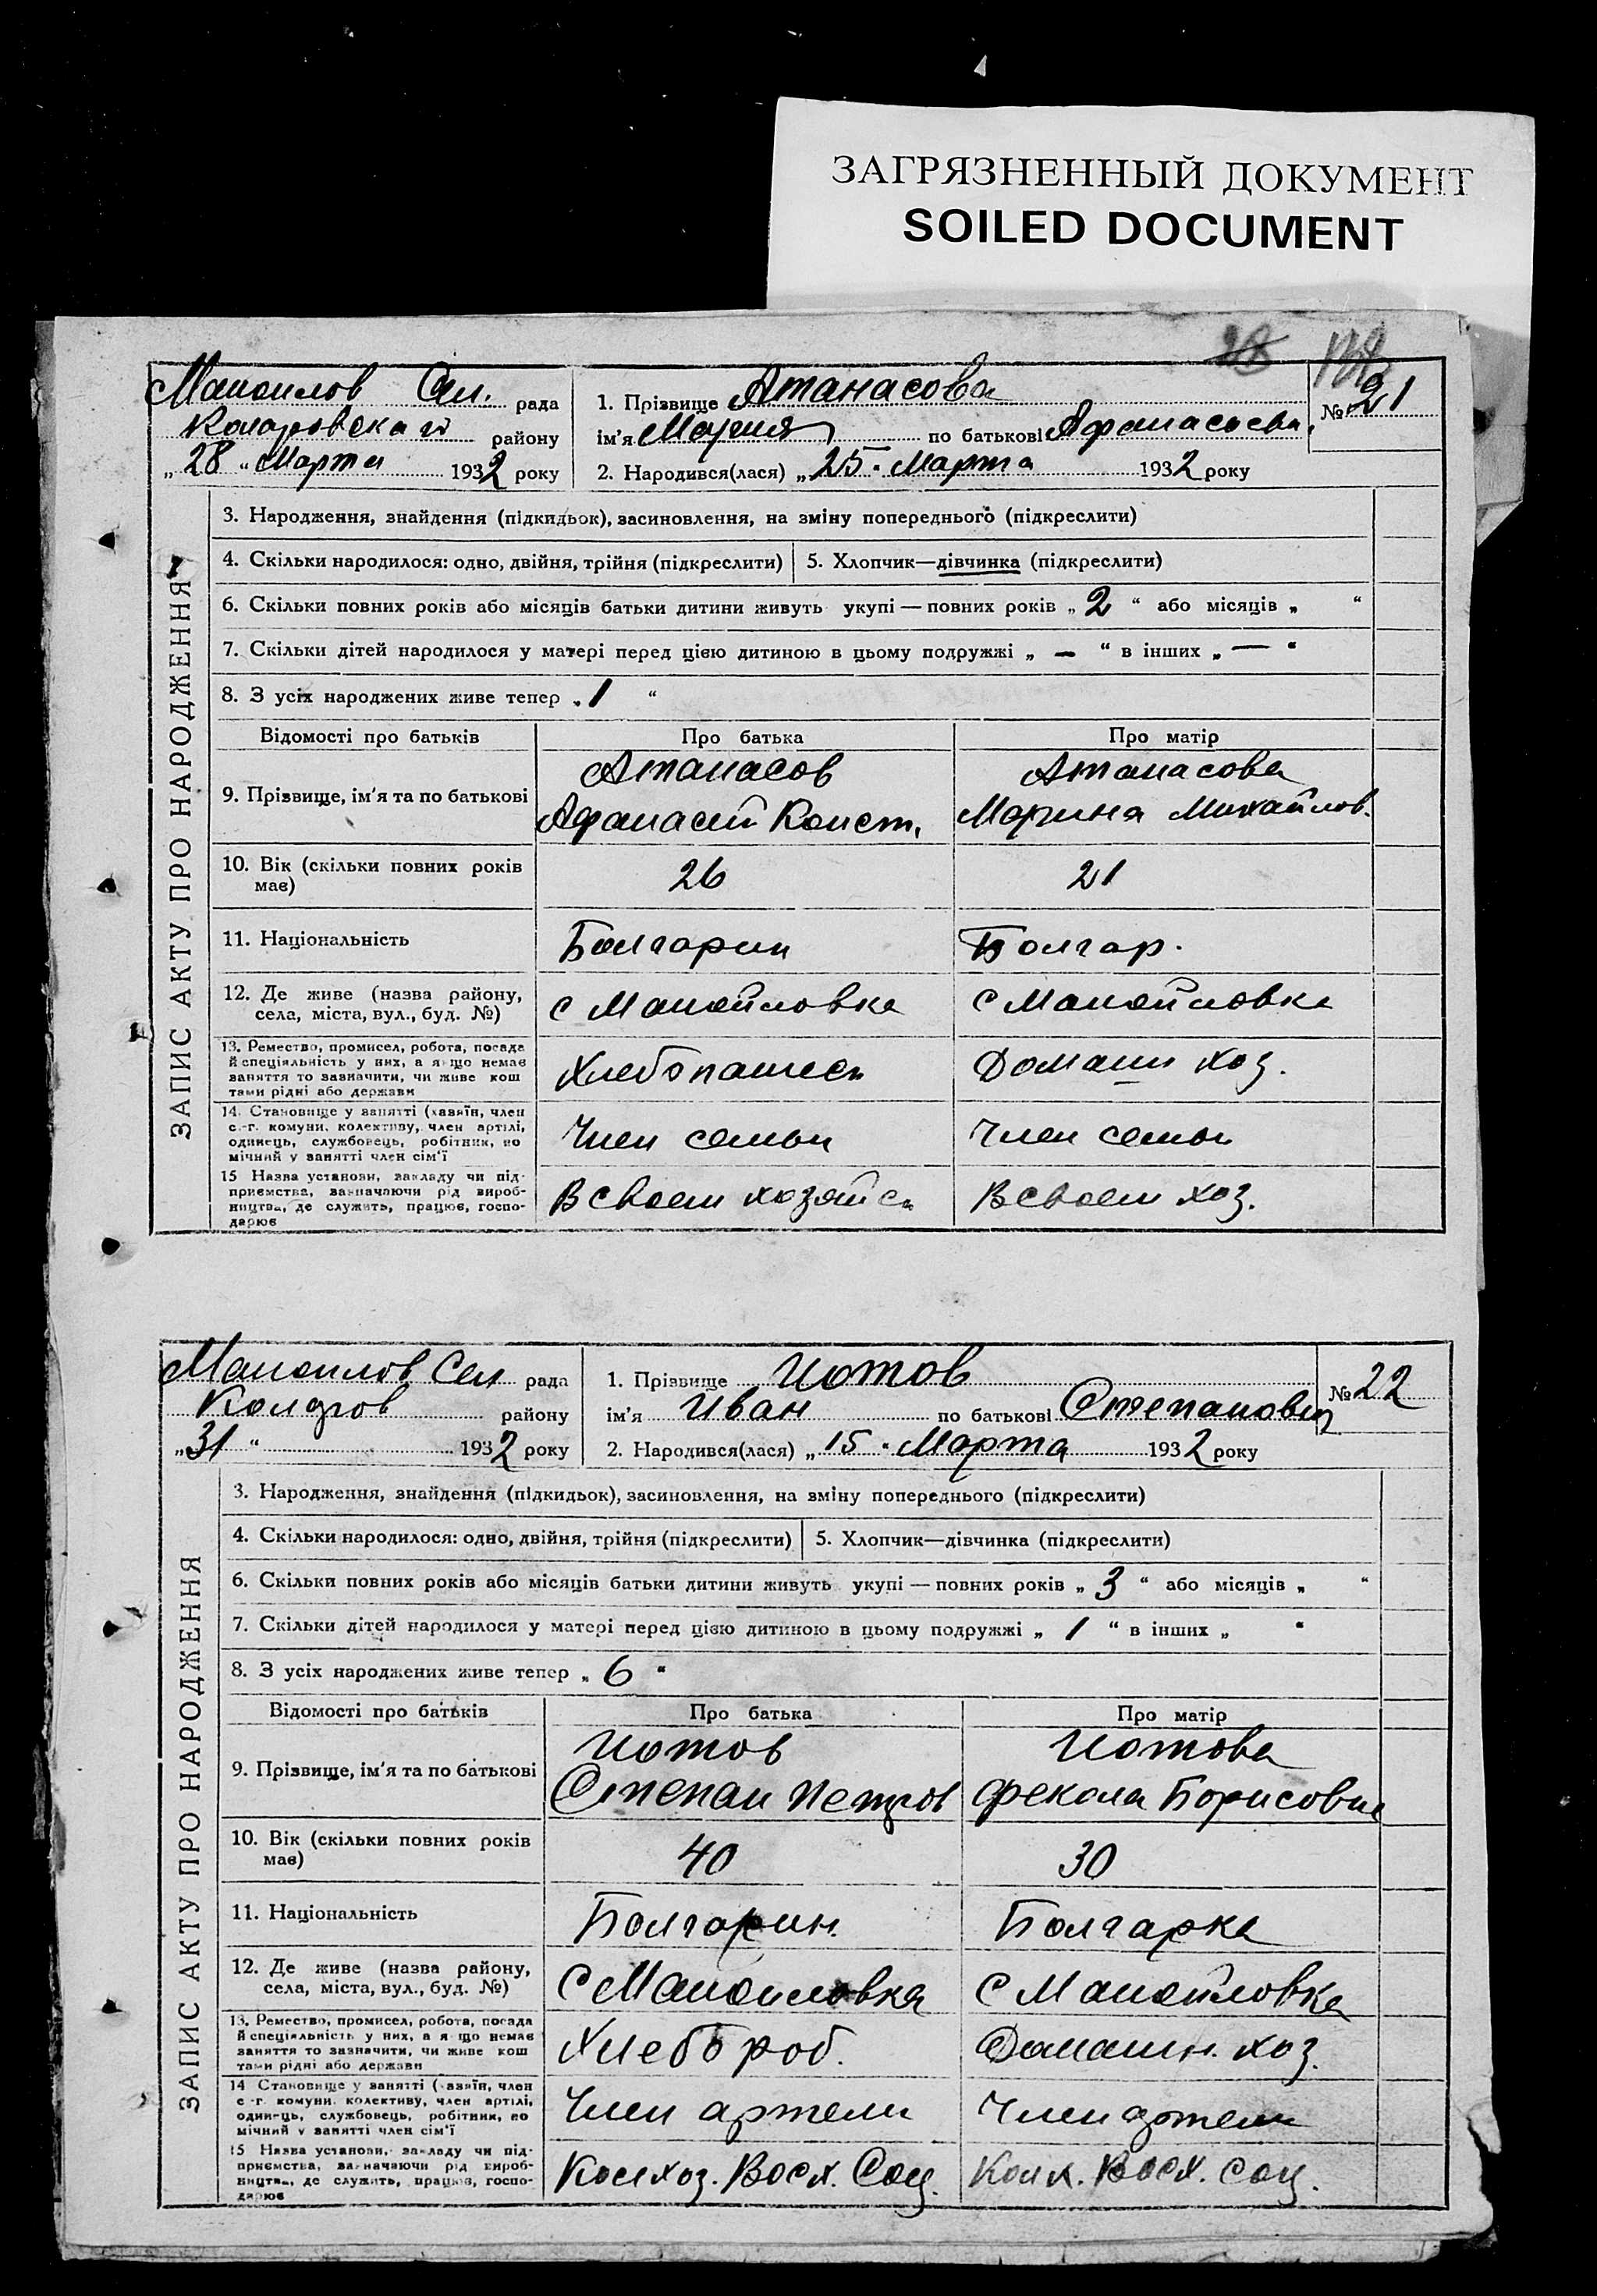 ЗАГРЯЗНЕННЫЙ ДОКУМЕНТ
SOILED DOCUMENT
28
Маноилов Сел. рада
Коларовского району
„28“ Марта 1932 року
1. Прізвище Атанасова
ім'я Мария по батькові Афанасьевн.
2. Народився(лася) „25“ Марта 1932 року
№ 21
ЗАПИС АКТУ ПРО НАРОДЖЕННЯ
3. Народження, знайдення (підкидьок), засиновлення, на зміну попереднього (підкреслити)
4. Скільки народилося: одно, двійня, трійня (підкреслити) 5. Хлопчик—дівчинка (підкреслити)
6. Скільки повних років або місяців батьки дитини живуть укупі — повних років „2“ або місяців „ “
7. Скільки дітей народилося у матері перед цією дитиною в цьому подружжі „—“ в інших „—“
8. З усіх народжених живе тепер „1“
Відомості про батьків Про батька Про матір
9. Прізвище, ім'я та по батькові
Атанасов
Афанасий Конст.
Атанасова
Марина Михайлов.
10. Вік (скільки повних років
має)
26 21
11. Національність Болгарин Болгар.
12. Де живе (назва району,
села, міста, вул., буд. №)
с Манойловка с Манойловка
13. Ремество, промисел, робота, посада
й спеціяльність у них, а якщо немає
заняття то зазначити, чи живе кош
тами рідні або держави
Хлебопашец Домашн хоз.
14. Становище у занятті (хазяїн, член
с.-г. комуни, колективу, член артілі,
одинець, службовець, робітник, по
мічний у занятті член сім'ї
Член семьи Член семьи
15 Назва установи, закладу чи під-
приємства, зазначаючи рід вироб-
ництва, де служить, працює, госпо-
дарює
В своем хозяйс В своем хоз.
Маноилов Сел рада
Коларов району
„31“ 1932 року
1. Прізвище Иотов
ім'я Иван по батькові Степанович
2. Народився(лася) „15“ Марта 1932 року
№ 22
ЗАПИС АКТУ ПРО НАРОДЖЕННЯ
3. Народження, знайдення (підкидьок), засиновлення, на зміну попереднього (підкреслити)
4. Скільки народилося: одно, двійня, трійня (підкреслити) 5. Хлопчик—дівчинка (підкреслити)
6. Скільки повних років або місяців батьки дитини живуть укупі — повних років „3“ або місяців „ “
7. Скільки дітей народилося у матері перед цією дитиною в цьому подружжі „1“ в інших „ “
8. З усіх народжених живе тепер „6“
Відомості про батьків Про батька Про матір
9. Прізвище, ім'я та по батькові
Иотов
Степан Петров
Иотова
Фекола Борисовна
10. Вік (скільки повних років
має)
40 30
11. Національність Болгарин. Болгарка
12. Де живе (назва району,
села, міста, вул., буд. №)
С Маноиловка С Манойловка
13. Ремество, промисел, робота, посада
й спеціяльність у них, а якщо немає
заняття то зазначити, чи живе кош
тами рідні або держави
Хлебороб. Домашн. хоз.
14 Становище у занятті (хазяїн, член
с.-г. комуни, колективу, член артілі,
одинець, службовець, робітник, по
мічний у занятті член сім'ї
Член артели Член артели
15 Назва установи, закладу чи під-
приємства, зазначаючи рід вироб-
ництва, де служить, працює, госпо-
дарює
Колхоз. Восх. Соц. Колх. Восх. Соц.